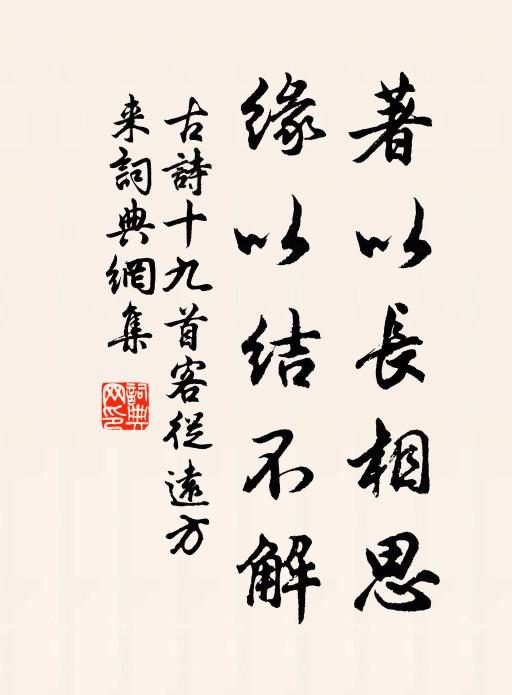 著以長相思
緣以結不解
古詩十九首客從遠方
来詞典網集
詞典
网印